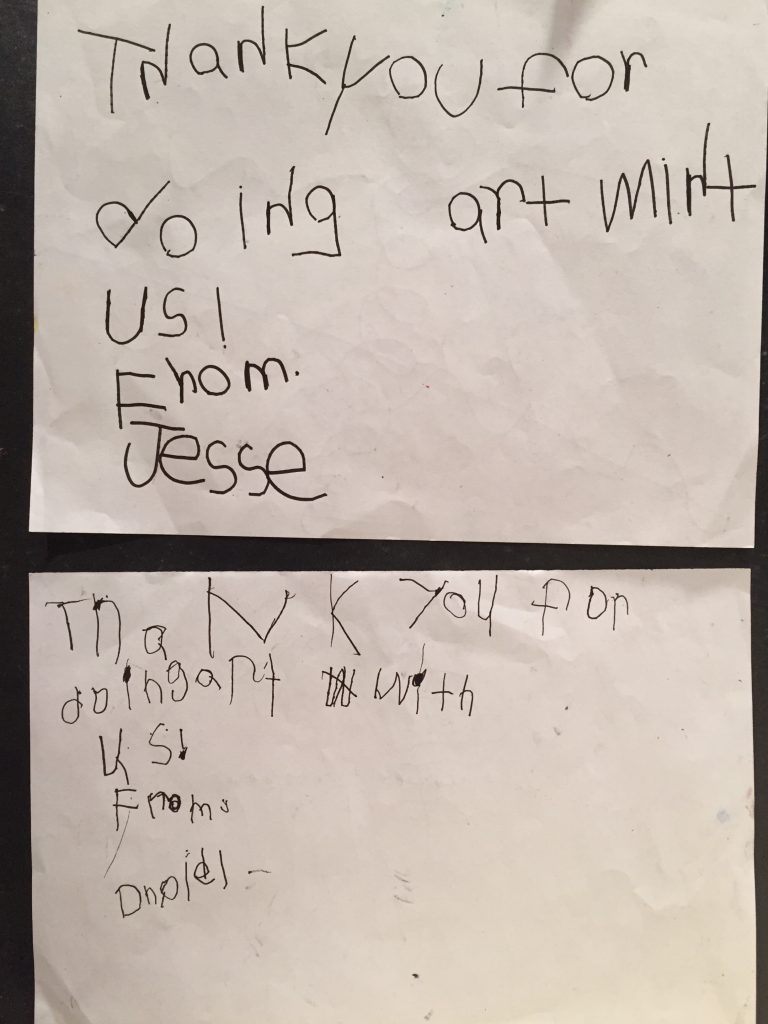 Thank you for
doing art miht
us!
Fhom.
Jesse
Thank you for
doing art with
us!
From: